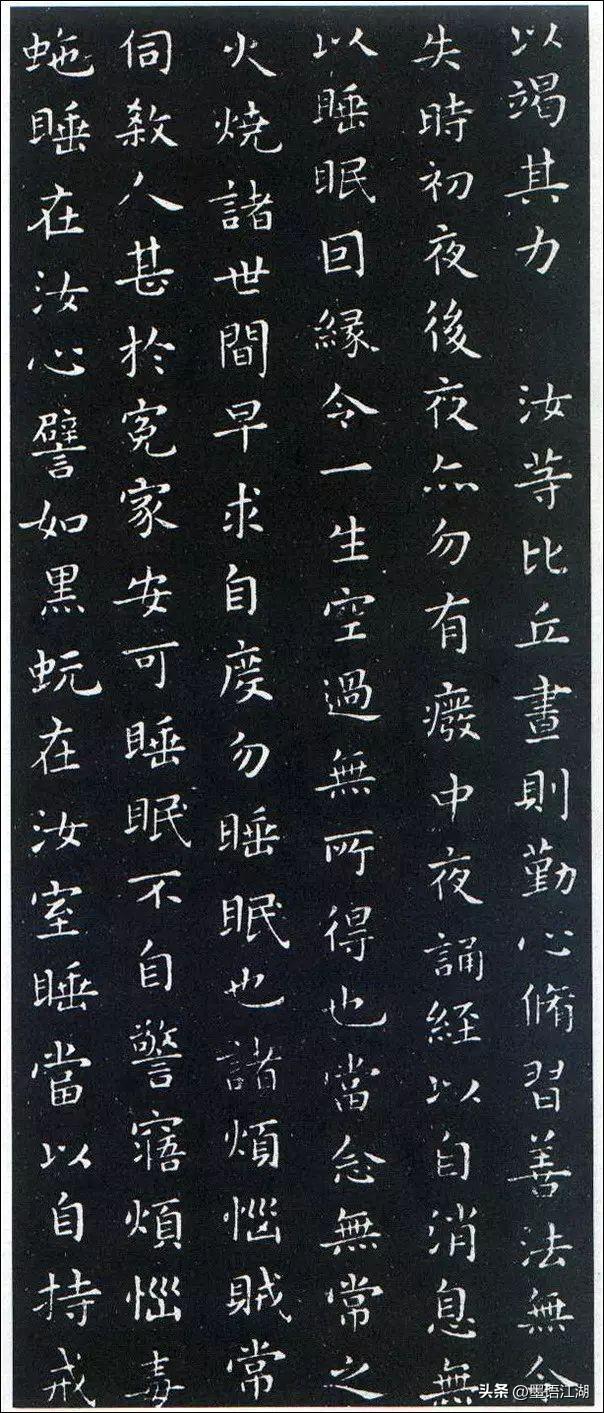 以竭其力　汝等比丘晝則勤心脩習善法無令
失時初夜後夜亦勿有癈中夜誦経以自消息無
以睡眠因緣令一生空過無所得也當念無常之
火燒諸世間早求自度勿睡眠也諸煩惱賊常
伺殺人甚於冤家安可睡眠不自警寤煩惱毒
虵睡在汝心譬如黑蚖在汝室睡當以自持戒
头条 @墨语江湖